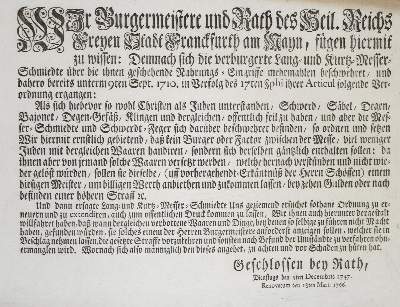 WIr Burgermeistere und Rath des Heil. Reichs
Freyen Stadt Franckfurth am Mayn, fügen hiermit
zu wissen: Demnach sich die verburgerte Lang- und Kurtz-Messer-
Schmiedte über die ihnen geschehende Nahrungs-Eingriffe mehrmahlen beschwehret, und
dahero bereits unterm 9ten Sept. 1710. in Verfolg des 17ten ihrer Articul folgende Ver-
ordnung ergangen:
Als sich hiebevor so wohl Christen als Juden unterstanden, Schwerd, Säbel, Degen,
Bajonet, Degen-Gefäß, Klingen und dergleichen, offentlich feil zu haben, und aber die Mes-
ser-Schmiedte und Schwerdt-Feger sich darüber beschwehret befinden, so ordnen und setzen
Wir hiermit ernstlich gebietend, daß kein Burger oder Factor zwischen der Messe, viel weniger
Juden mit dergleichen Waaren handiren, sondern sich derselben gäntzlich enthalten sollen; da
ihnen aber von jemand solche Waaren versetzt werden, welche hernach verstünden und nicht wie-
der gelößt würden, sollen sie dieselbe, (uff vorhergehende Erkäntnüß der Herrn Schöffen) einem
hiesigen Meister, um billigen Werth anbiethen und zukommen lassen, bey zehen Gulden oder nach
befinden einer höhern Straff ꝛc.
Und dann ersagte Lang- und Kurtz-Messer-Schmiedte Uns geziemend ersuchet sothane Ordnung zu er-
neuern und zu extendiren, auch zum offentlichen Druck kommen zu lassen, Wir ihnen auch hierunter derge
willfahret haben, daß wann dergleichen verbottene Waaren und Dinge, bey denen so selbige zu führen nicht Macht
haben, gefunden würden, sie solches einem der Herren Burgermeistere anforderst anzeigen sollen, welcher sie in
Beschlag nehmen lassen, die gesetzte Straffe vorzukehren und sonsten nach Befund der Umstände zu verfahren ohn-
ermanglen wird. Wornach sich also männiglich den dieses angehet, zu achten und vor Schaden zu hüten hat.
Geschlossen bey Rath,
Dienstags den Decembris 1747.
Renovatum den 18ten Mart. 1766.